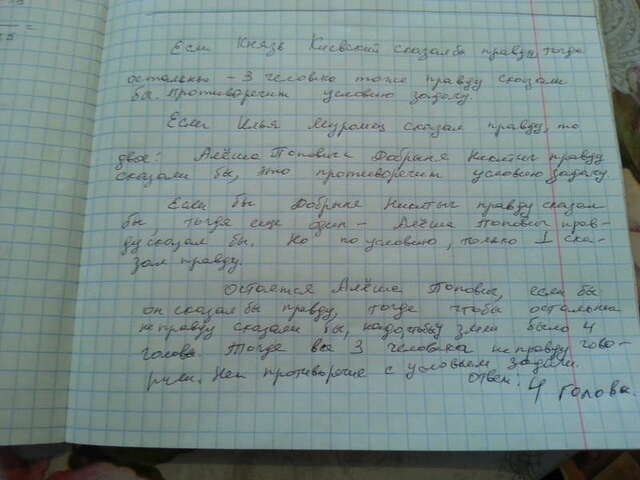 5 =
Если Князь Киевский сказал бы правду, тогда
остальные - 3 человека тоже правду сказали
бы. Противоречит условию задачи.
Если Илья Муромец сказал правду, то
двое: Алёша Попович Добрыня Никитич правду
сказали бы, это противоречит условию задачи.
Если бы Добрыня Никитыч правду сказал
бы, тогда еще один - Алёша Попович прав-
ду сказал бы. Но по условию, только 1 ска-
зал правду.
Остаётся Алёша Попович, если бы
он сказал бы правду, тогда чтобы остальные
неправду сказали бы, надо чтобы у змея было 4
головы. Тогда все 3 человека неправду гово-
рили. Нет противоречие с условием задачи.
Ответ: 4 головы.